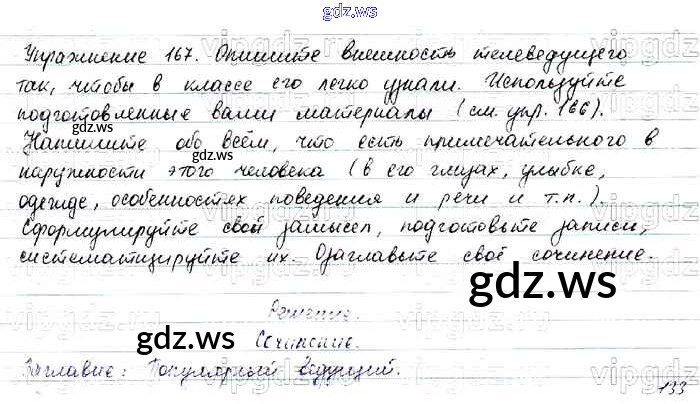 gdz.ws
Упражнение 167. Опишите внешность телеведущего
так, чтобы в классе его легко узнали. Используйте
подготовленные вами материалы (см. упр. 166).
gdz.ws
Напишите обо всём, что есть примечательного в
наружности этого человека (в его глазах, улыбке,
одежде, особенностях поведения и речи и т.п.).
gdz.ws
Сформулируйте свой замысел, подготовьте записи,
систематизируйте их. Озаглавьте своё сочинение.
gdz.ws
Решение.
gdz.ws
Сочинение.
Заглавие: Популярный ведущий.
133